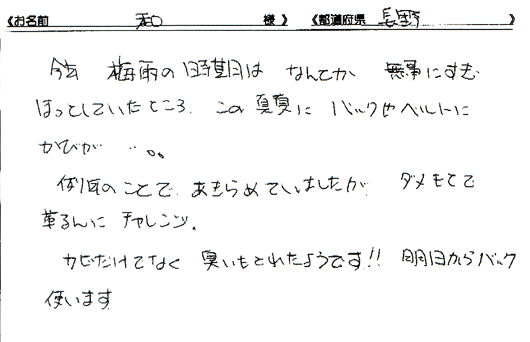 《お名前 和 様》 《都道府県 長野
今年 梅雨の時期は なんとか 無事にすぎ、
ほっとしていたところ、この夏頃に バックやベルトに
かびが …。。
例年のことで、あきらめていましたが、ダメもとで
革るんに チャレンジ。
カビだけでなく 臭いもとれたようです!! 明日からバック
使います